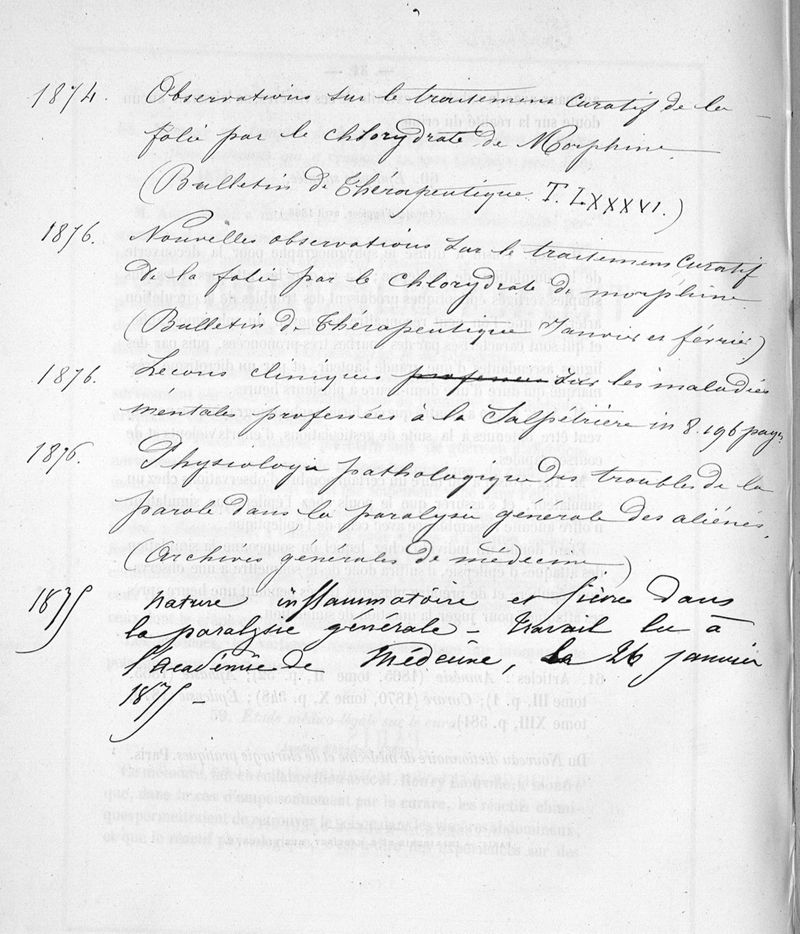 1874. Observations sur le traitement curatif de la
folie par le chlorydrate de Morphine
(Bulletin de Thérapeutique T. LXXXVI.)
1876. Nouvelles observations sur le traitement curatif
de la folie par le chlorydrate de morphine
(Bulletin de Thérapeutique Janvier et février)
1876. Lecons cliniques sur les maladies
mentales professées à la Salpétrière in 8. 196 pages
1876. Physiologie pathologique des troubles de la
parole dans la paralysie générale des aliénés.
(Archives générales de médecine)
1875 Nature inflammatoire et fièvre dans
la paralysie générale - travail lu à
l'Académie de Médecine, le 26 janvier
1875 -